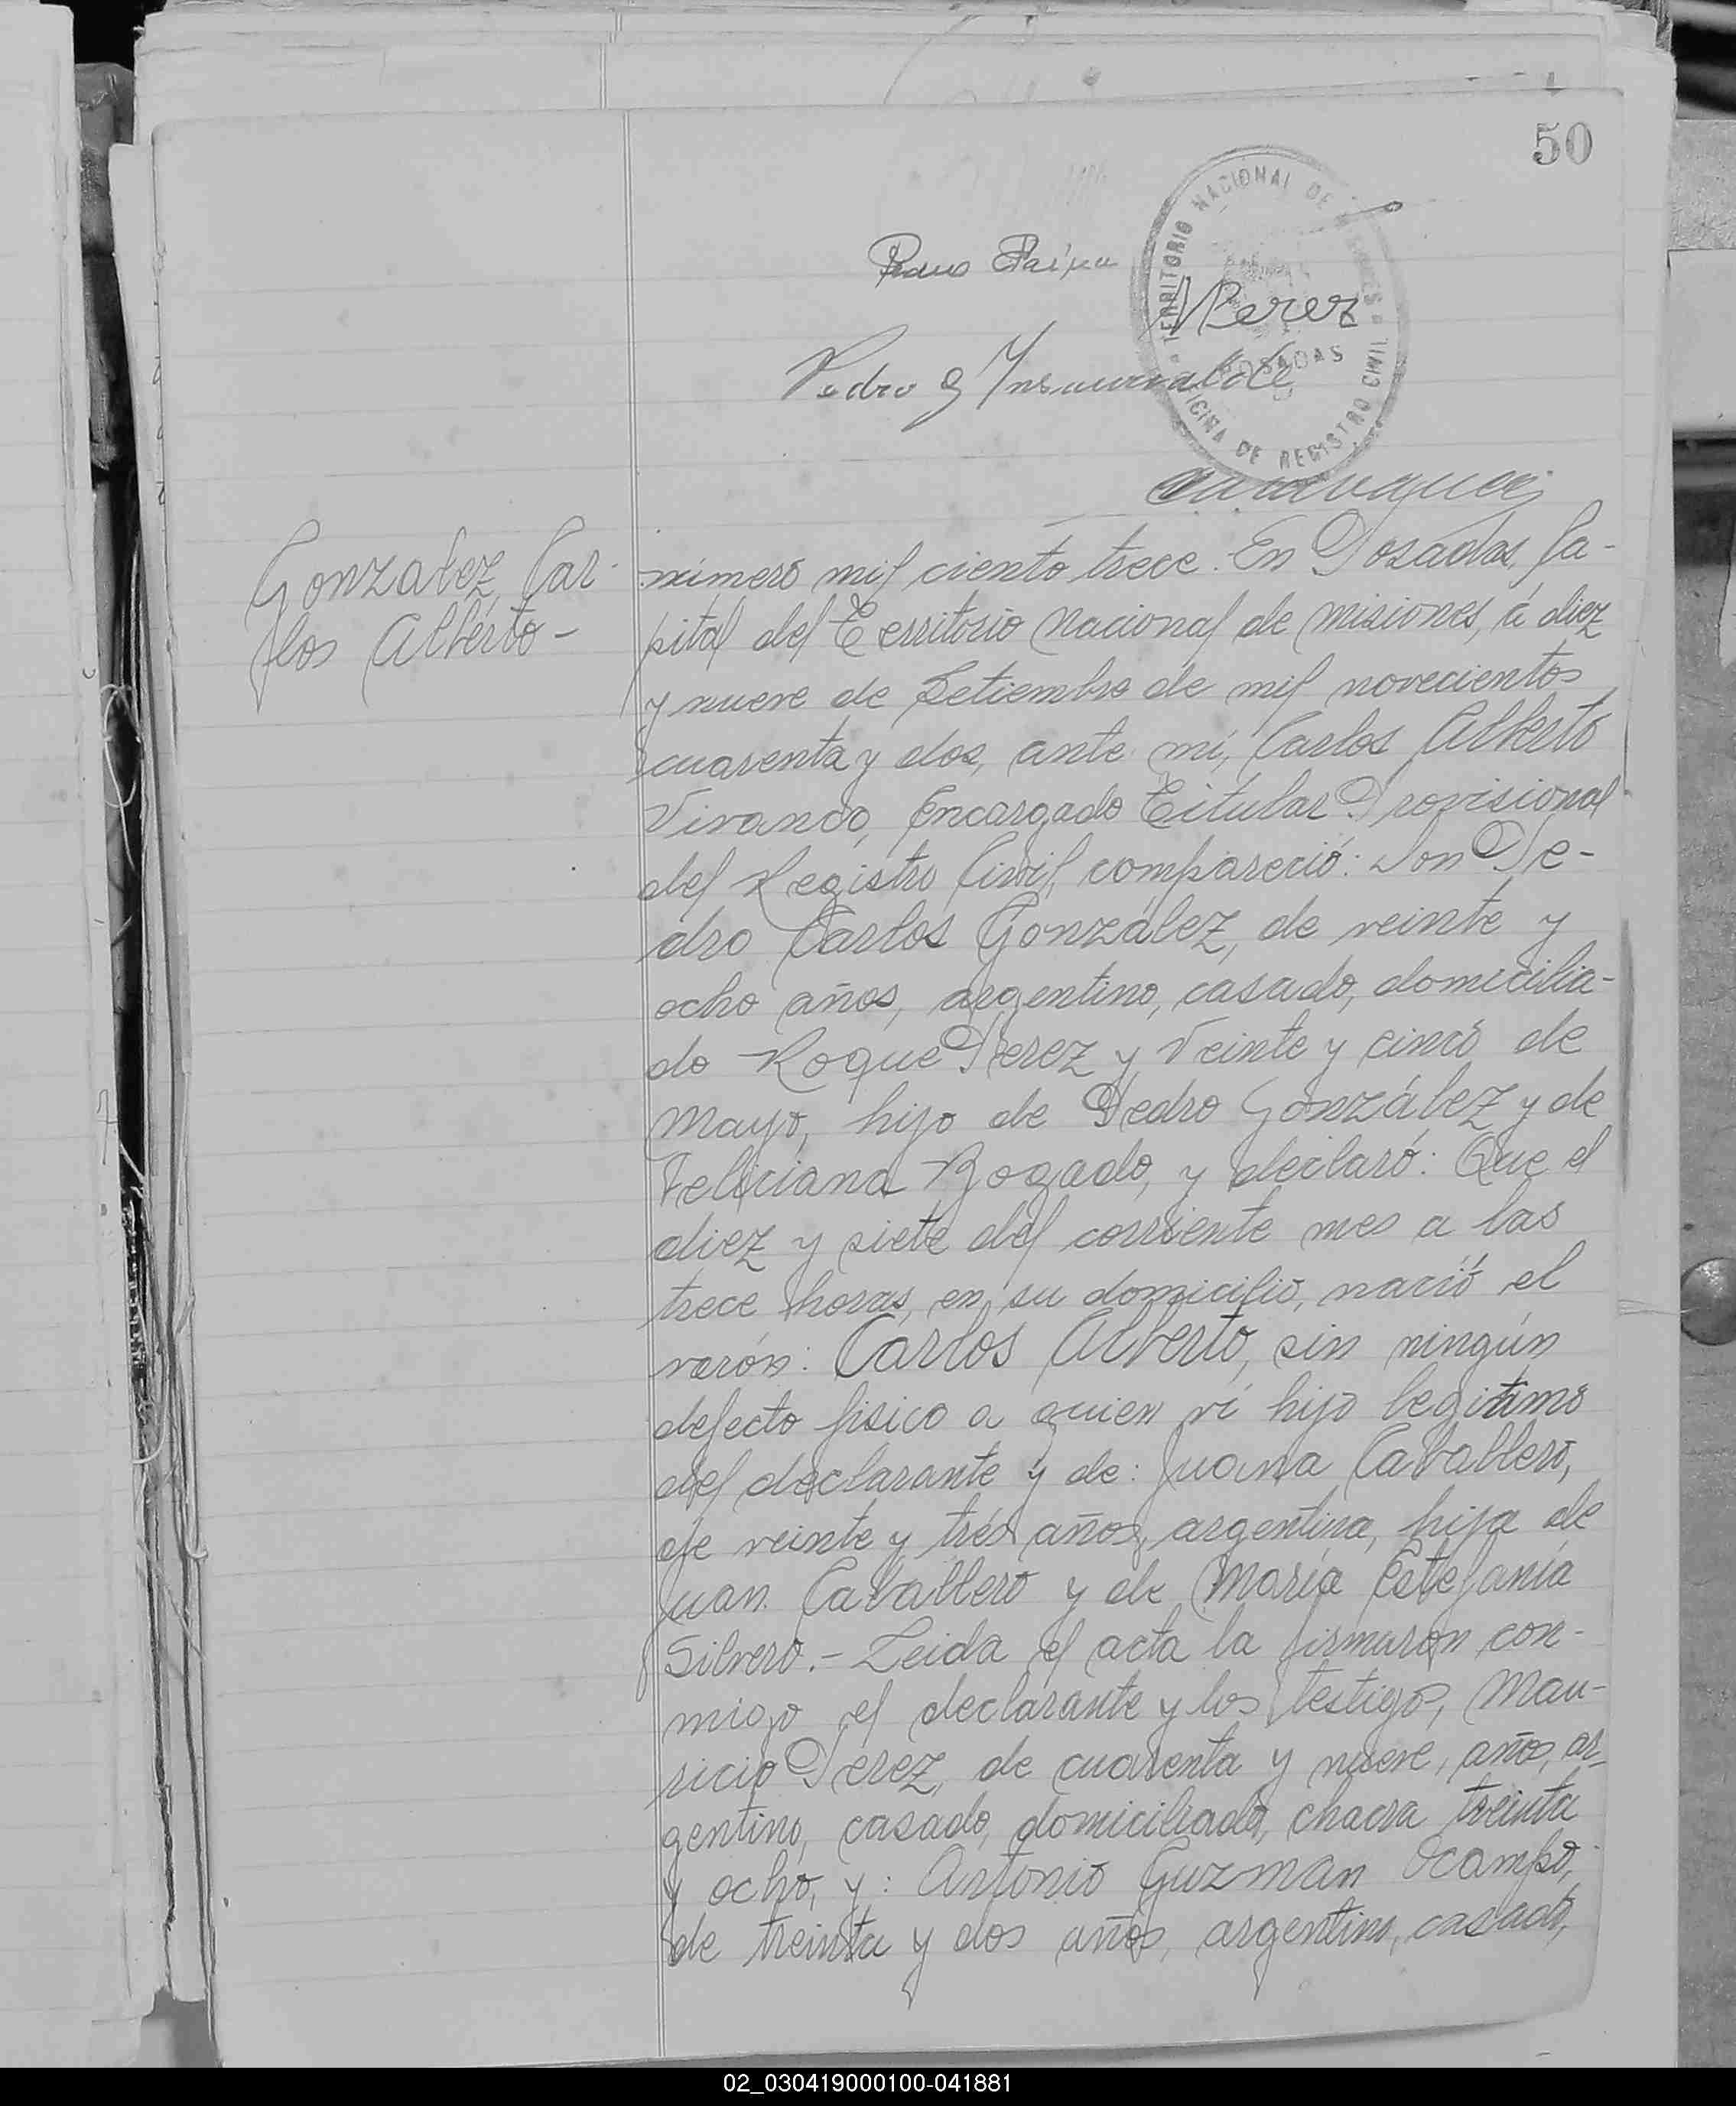 50
TERRITORIO NACIONAL DE MISIONES
POSADAS
OFICINA DE REGISTRO CIVIL
MPerez
Pedro G Insaurralde
Gonzalez, Car-
los Alberto-
número mil ciento trece. En Posadas, Ca-
pital del Territorio Nacional de Misiones, á diez
y nueve de Setiembre de mil novecientos
cuarenta y dos, ante mí, Carlos Alberto
Vivanco, Encargado Titular Provisional
del Registro Civil, compareció: Don Pe-
dro Carlos González, de veinte y
ocho años, argentino, casado, domicilia-
do Roque Perez y Veinte y cinco de
Mayo, hijo de Pedro González y de
Feliciana Bogado, y declaró: Que el
diez y siete del corriente mes a las
trece horas, en su domicilio, nació el
varón: Carlos Alberto, sin ningún
defecto fisico a quien ví hijo legitimo
del declarante y de: Juana Caballero,
de veinte y trés años, argentina, hija de
Juan Caballero y de María Estefanía
Silvero.- Leida el acta la firmaron con-
migo el declarante y los testigos, Mau-
ricio Perez, de cuarenta y nueve, años, ar-
gentino, casado, domiciliado, chacra treinta
y ocho, y: Antonio Guzman Ocampo,
de treinta y dos años, argentino, casado,
02_030419000100-041881